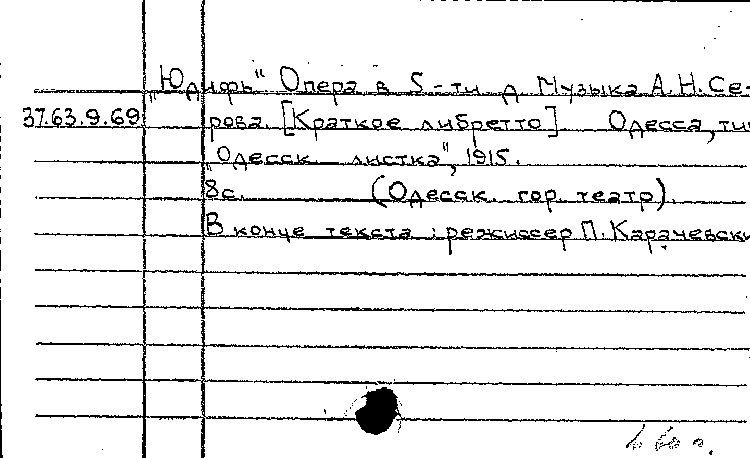 „Юдифь“ Опера в 5-ти д Музыка А.Н.Се-
37.63.9.69 рова. [Краткое либретто]. Одесса, тип
„Одесск. листка“, 1915.
8с. (Одесск. гор. театр).
В конце текста : режиссер П. Карачевски